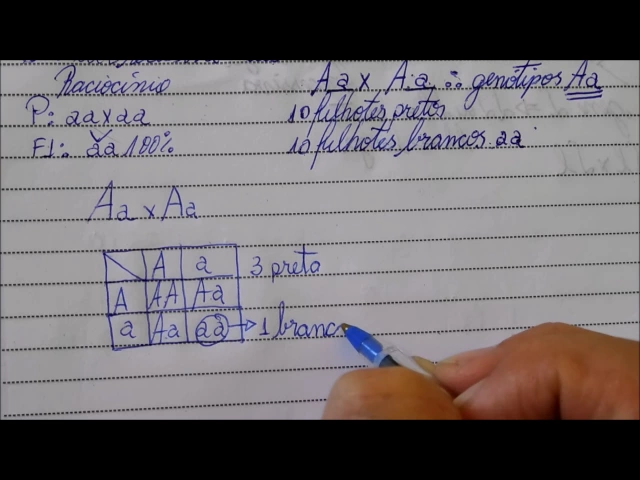 Raciocínio
P: aa x aa
F1: aa 100%
Aa x Aa ∴ genótipos Aa
10 filhotes pretos
10 filhotes brancos aa
Aa x Aa
A a
A AA Aa
a Aa aa → 1 branc
3 preta